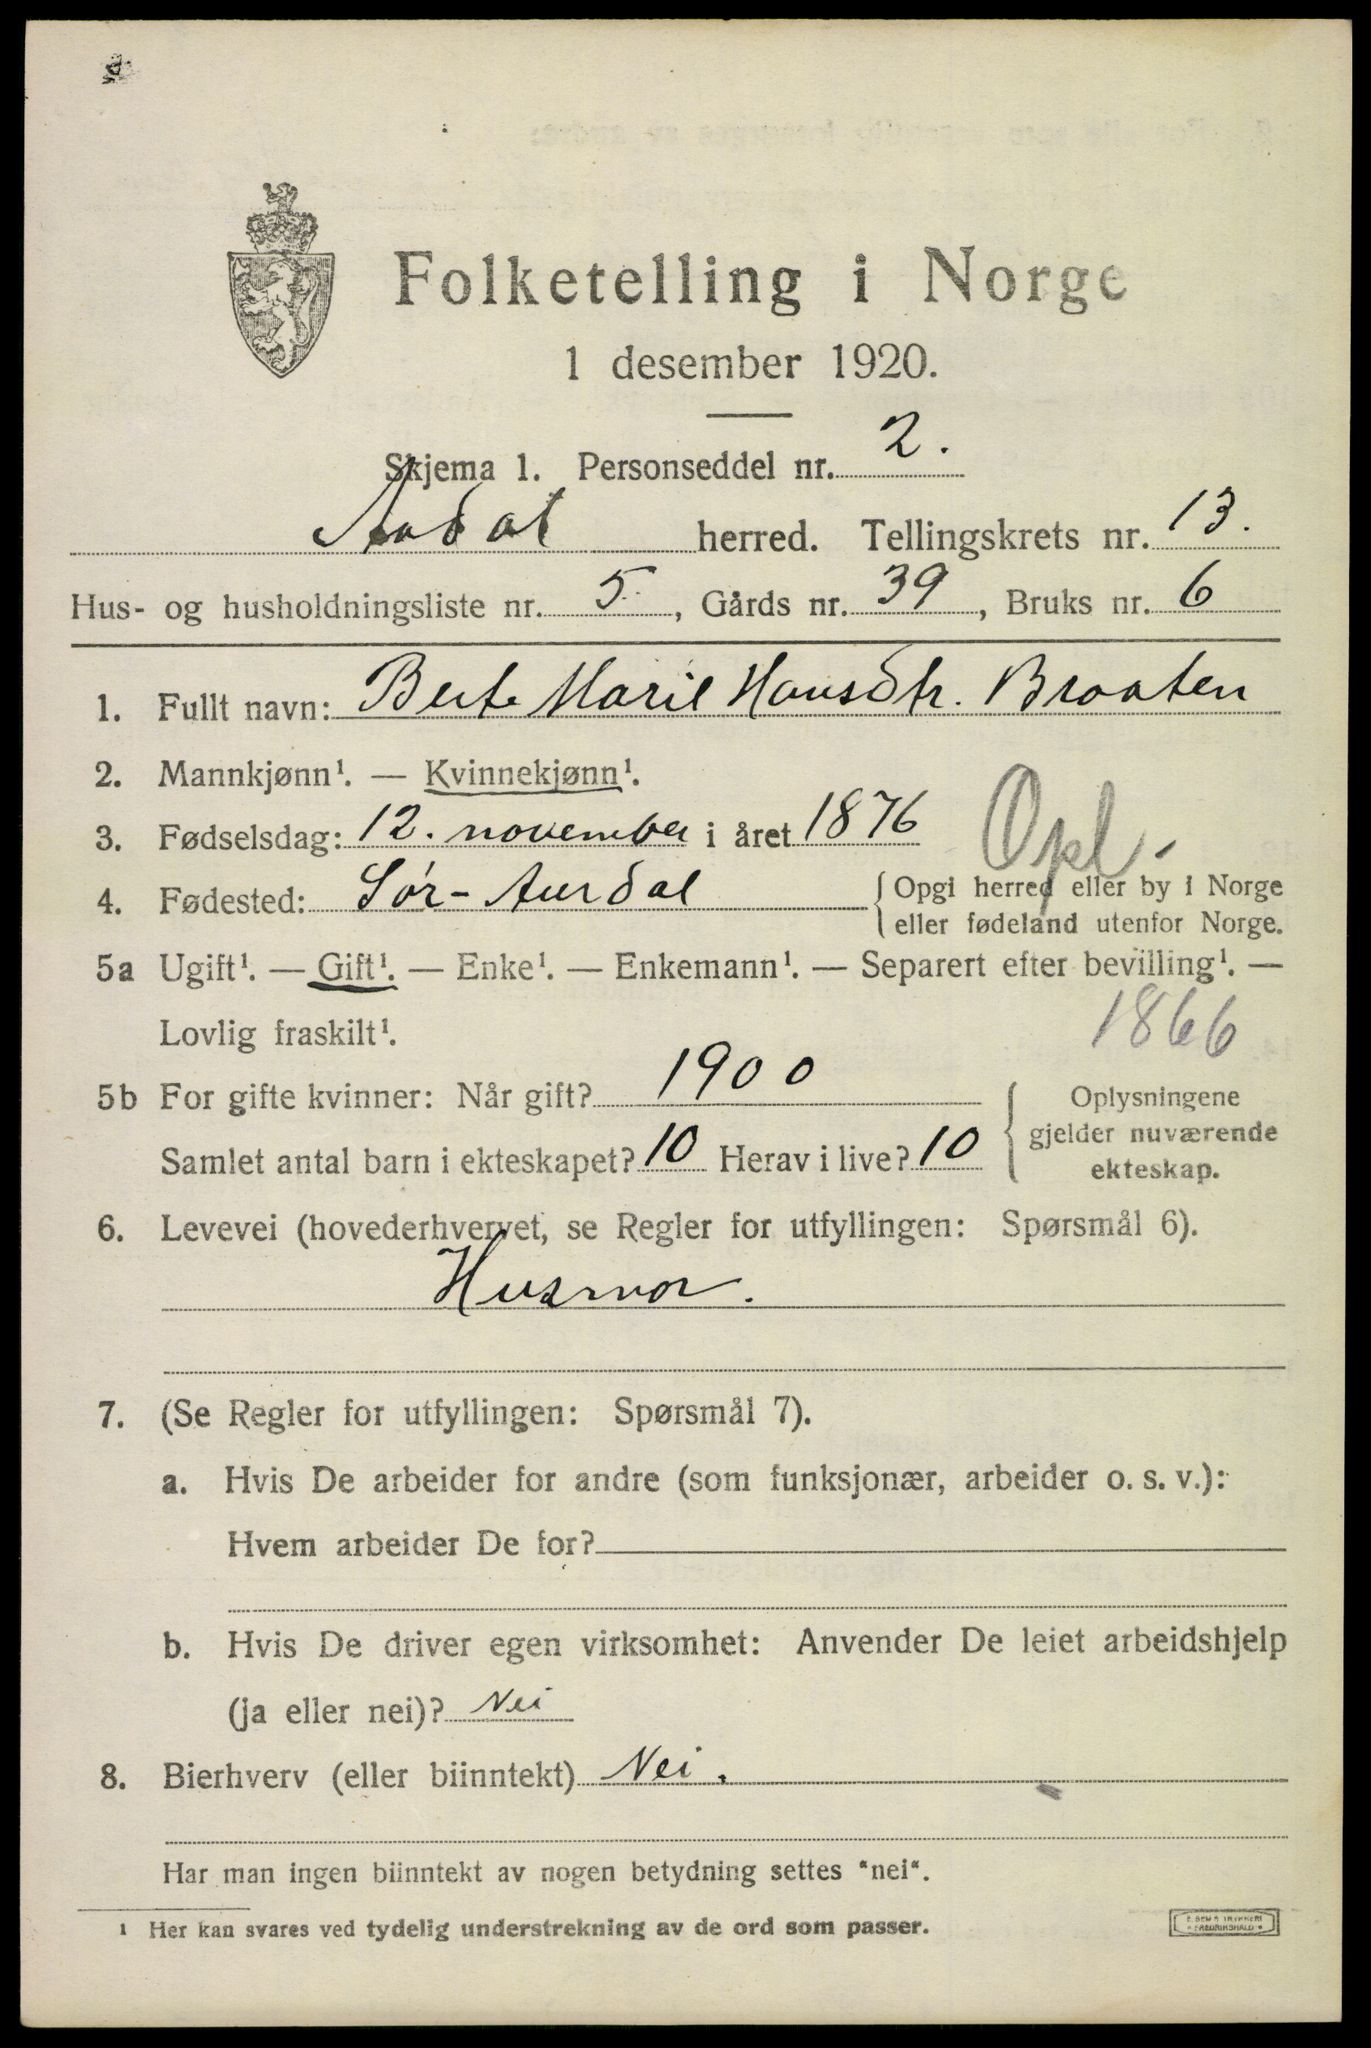 Folketelling i Norge
1 desember 1920.
Skjema 1. Personseddel nr. 2.
Aadal herred. Tellingskrets nr. 13.
Hus- og husholdningsliste nr. 5., Gårds nr. 39, Bruks nr. 6
1. Fullt navn: Berte Marie Hansdtr. Braaten
2. Mannkjønn¹. — Kvinnekjønn¹.
3. Fødselsdag: 12. november i året 1876
Opl.
4. Fødested: Sør-Aurdal { Opgi herred eller by i Norge
eller fødeland utenfor Norge.
5a Ugift¹. — Gift¹. — Enke¹. — Enkemann¹. — Separert efter bevilling¹. —
Lovlig fraskilt¹.
1866
5b For gifte kvinner: Når gift? 1900
Samlet antal barn i ekteskapet? 10 Herav i live? 10
{ Oplysningene
gjelder nuværende
ekteskap.
6. Levevei (hovederhvervet, se Regler for utfyllingen: Spørsmål 6).
Husmor.
7. (Se Regler for utfyllingen: Spørsmål 7).
a. Hvis De arbeider for andre (som funksjonær, arbeider o. s. v.):
Hvem arbeider De for?
b. Hvis De driver egen virksomhet: Anvender De leiet arbeidshjelp
(ja eller nei)? Nei
8. Bierhverv (eller biinntekt) Nei.
Har man ingen biinntekt av nogen betydning settes "nei".
¹ Her kan svares ved tydelig understrekning av de ord som passer.
E. SEM'S TRYKKERI
FREDRIKSHALD